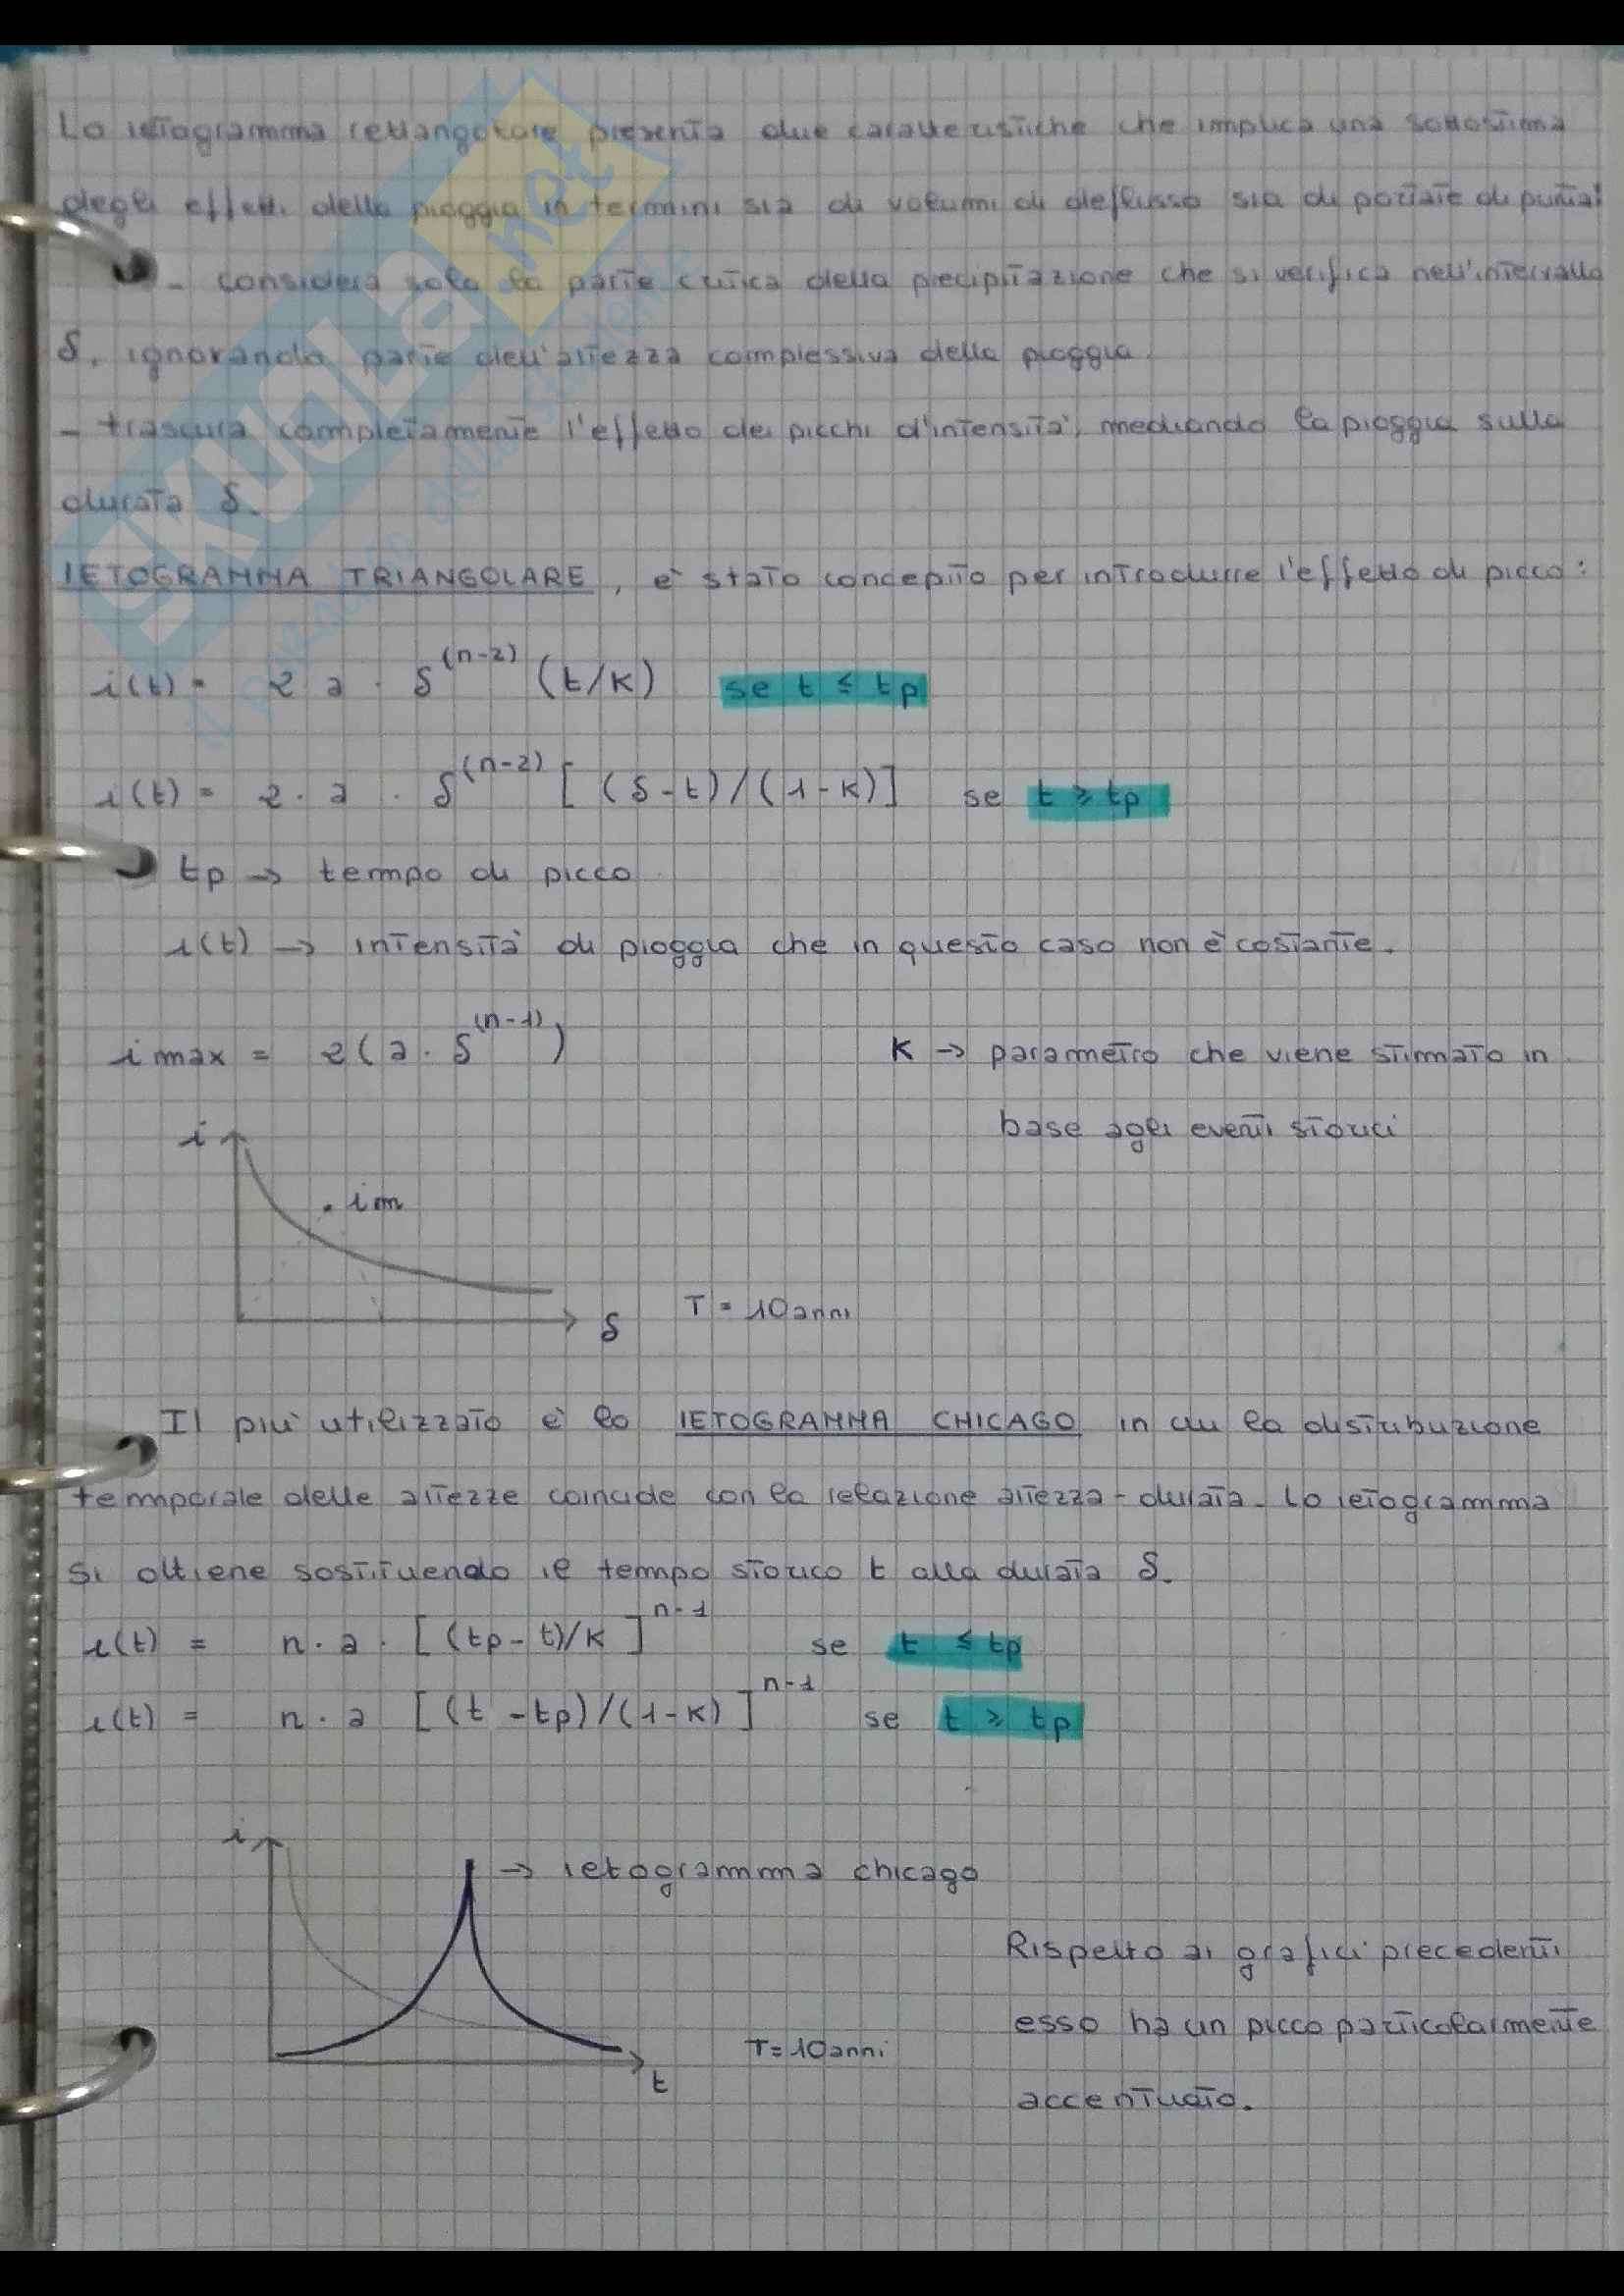 Lo ietogramma rettangolare presenta due caratteristiche che implica una sottostima
degli effetti della pioggia in termini sia di volumi di deflusso sia di portate di punta:
- considera solo la parte critica della precipitazione che si verifica nell'intervallo
δ, ignorando parte dell'altezza complessiva della pioggia.
- trascura completamente l'effetto dei picchi d'intensità, mediando la pioggia sulla
durata δ.
IETOGRAMMA TRIANGOLARE, è stato concepito per introdurre l'effetto di picco:
i(t) = 2 a · δ^(n-2) (t/K) se t ≤ tp
i(t) = 2 · a · δ^(n-2) [(δ-t)/(1-K)] se t ≥ tp
tp → tempo di picco
i(t) → intensità di pioggia che in questo caso non è costante.
i max = 2(a · δ^(n-1)) K → parametro che viene stimato in
base agli eventi storici
i
. im
δ T = 10 anni
Il più utilizzato è lo IETOGRAMMA CHICAGO in cui la distribuzione
temporale delle altezze coincide con la relazione altezza-durata. Lo ietogramma
si ottiene sostituendo il tempo storico t alla durata δ.
i(t) = n · a · [(tp-t)/K]^n-1 se t ≤ tp
i(t) = n · a [(t-tp)/(1-K)]^n-1 se t ≥ tp
i
→ ietogramma chicago
Rispetto ai grafici precedenti
esso ha un picco particolarmente
T=10 anni
t
accentuato.
SKUOLA.net